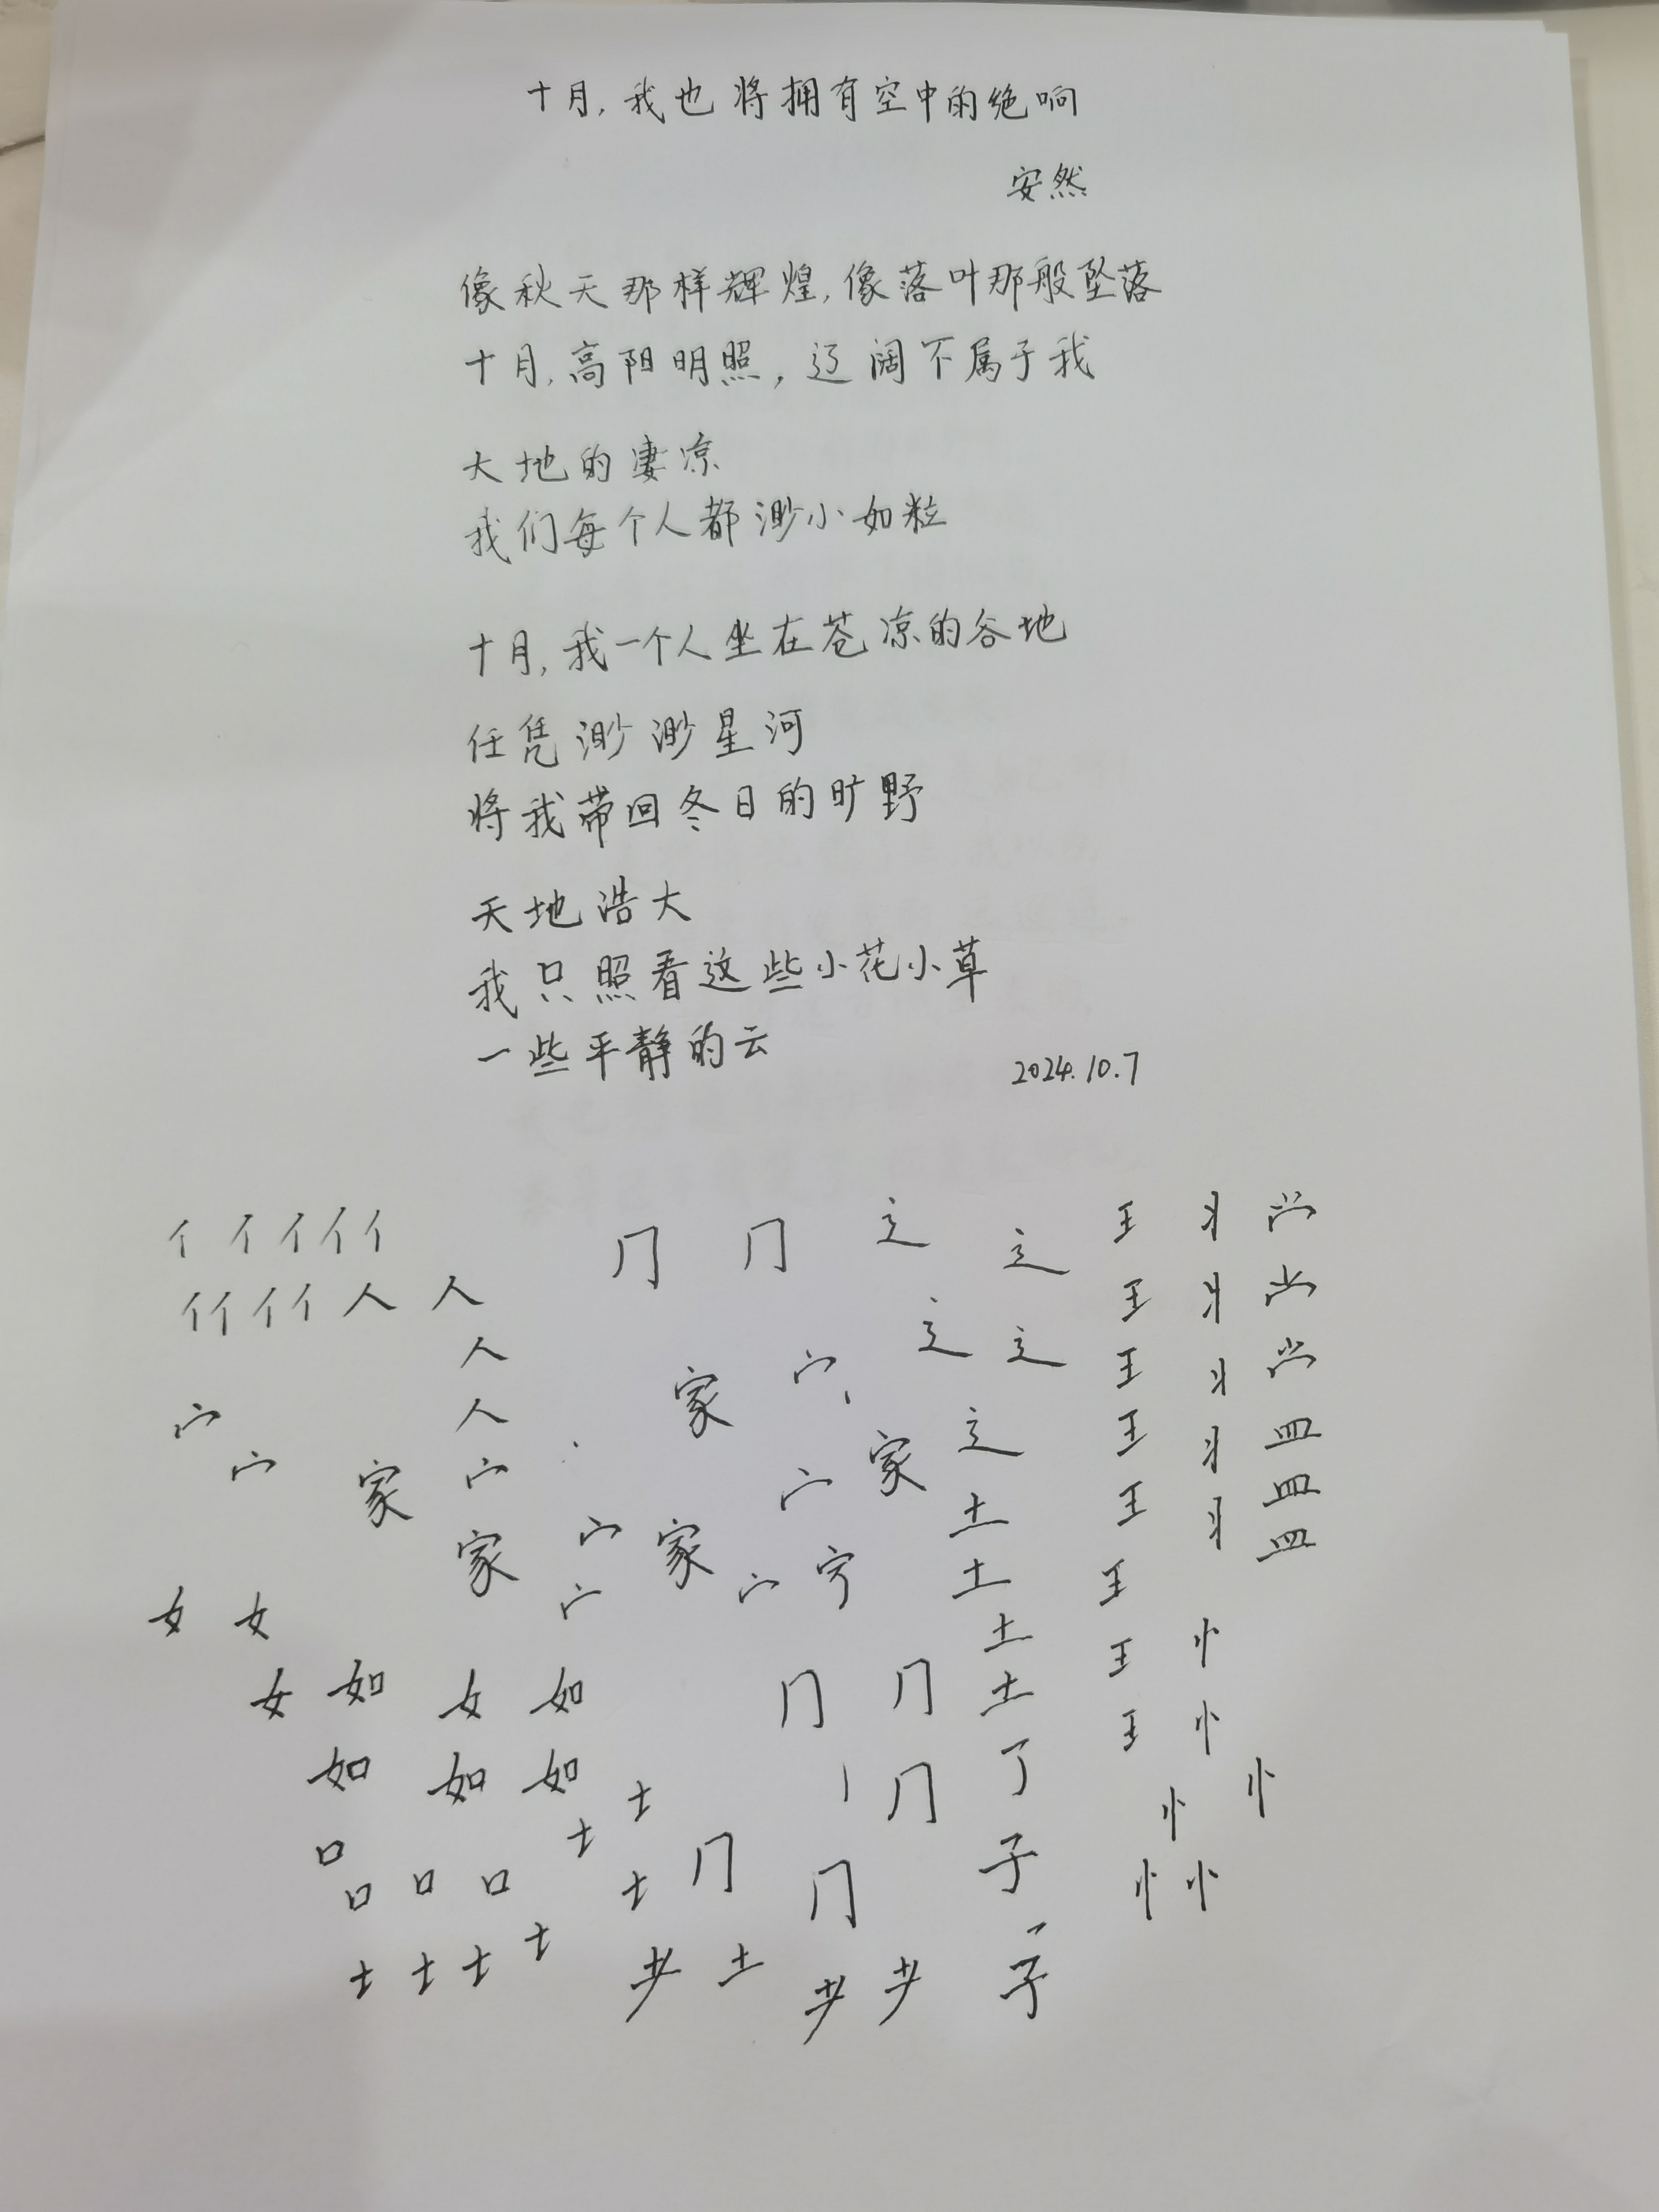 十月,我也将拥有空中的绝响
安然
像秋天那样辉煌,像落叶那般坠落
十月,高阳明照,辽阔不属于我
大地的凄凉
我们每个人都渺小如粒
十月,我一个人坐在苍凉的谷地
任凭渺渺星河
将我带回冬日的旷野
天地浩大
我只照看这些小花小草
一些平静的云
2024.10.7
亻亻亻亻亻
亻亻亻亻人人
人
人
宀宀家宀
家宀家宀
家宀家宀宀
女女
女如女如
如如如
口
口口口
土土土土土土土
门门
门门
门门门
土
辶辶
辶辶
辶
土
土
土
土
了
子
子
王
王
王
王
王
王
王
王
丬
丬
丬
丬
丬
皿
皿
皿
忄
忄
忄忄
忄忄